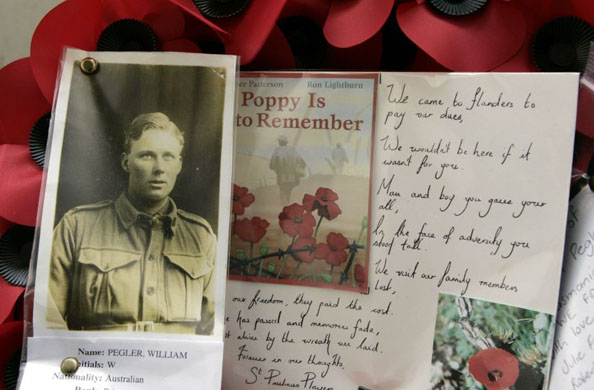 er Patterson Ron Lightburn
Poppy Is
to Remember
We came to flanders to
pay our dues,
We wouldn't be here if it
wasnt for you.
Man and boy you gave your
all,
In the face of adversity you
stood tall.
We visit our family members
lost,
our freedom, they paid the cost.
has passed and memories fade,
alive by the wreath we laid.
Forever in our thoughts.
Name: PEGLER, WILLIAM
itials: W
Nationality: Australian